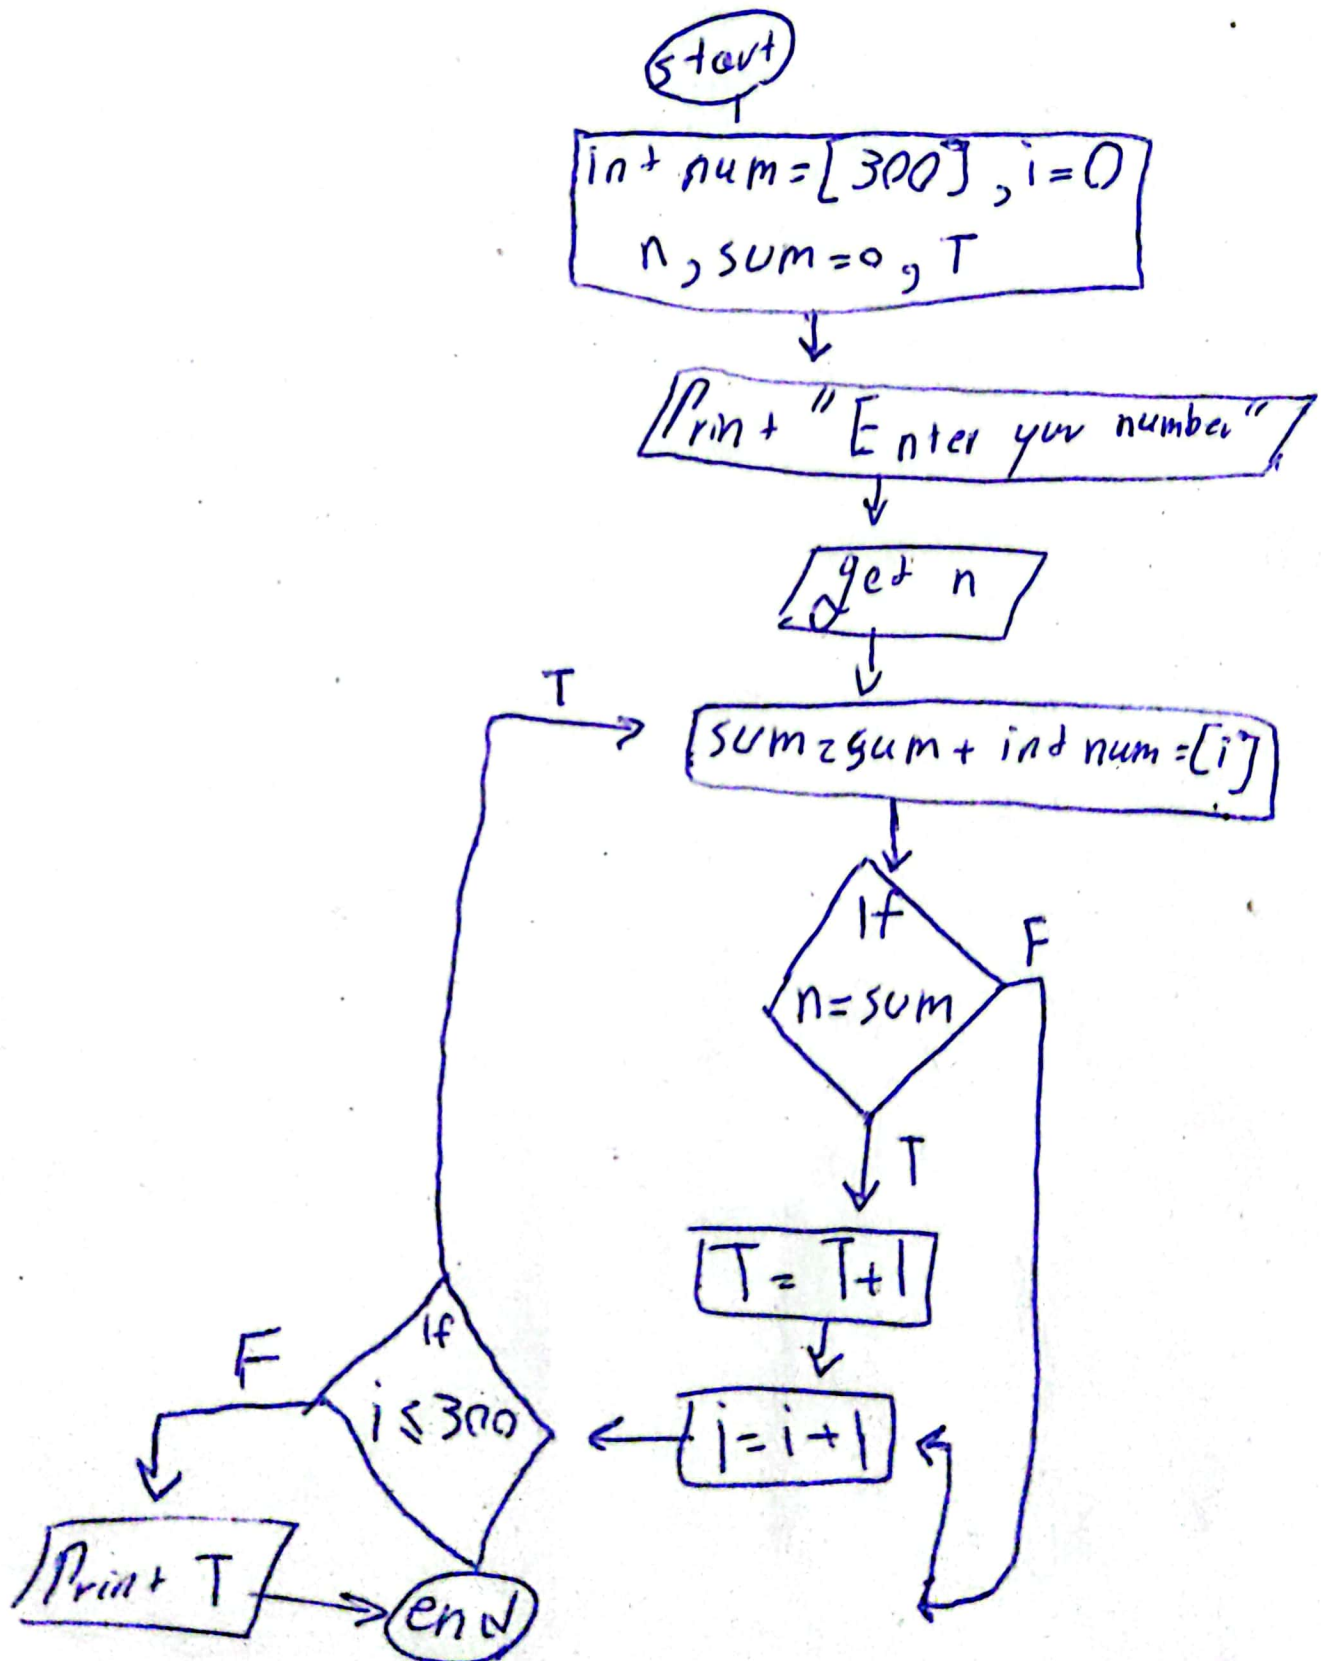 start
int num=[300], i=0
n, sum=0, T
Print "Enter your number"
get n
T
sum=sum+ int num=[i]
If
n=sum
F
T
T= T+1
i=i+1
If
i≤300
F
Print T
end